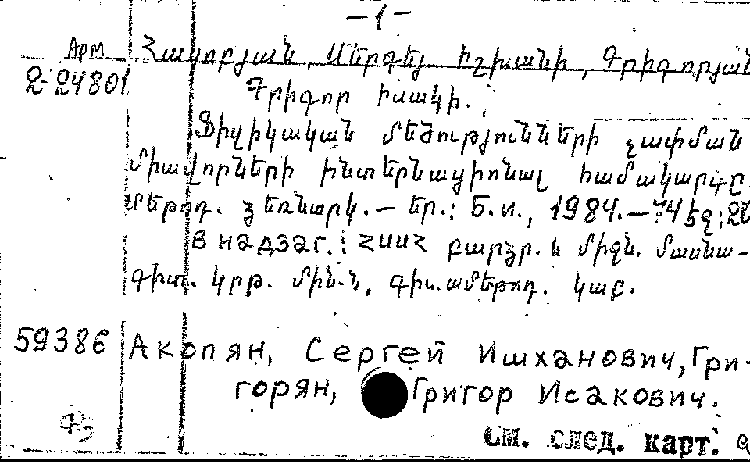 -1-
Арм Հակոբյան Սերգեյ Իշխանի, Գրիգորյան
2-24801 Գրիգոր Իսակի.
Ֆիզիկական մեծությունների չափման
միավորների ինտերնացիոնալ համակարգը.
մեթոդ. ձեռնարկ. – Եր.: Б. и., 1984. – 74 էջ; 20
В надзаг.: ՀՍՍՀ բարձր. և միջն. մասնա-
գիտ. կրթ. մին-ն, գիտամեթոդ. կաբ.
59386 Акопян, Сергей Ишханович, Гри-
горян, Григор Исакович.
см. след. карт.